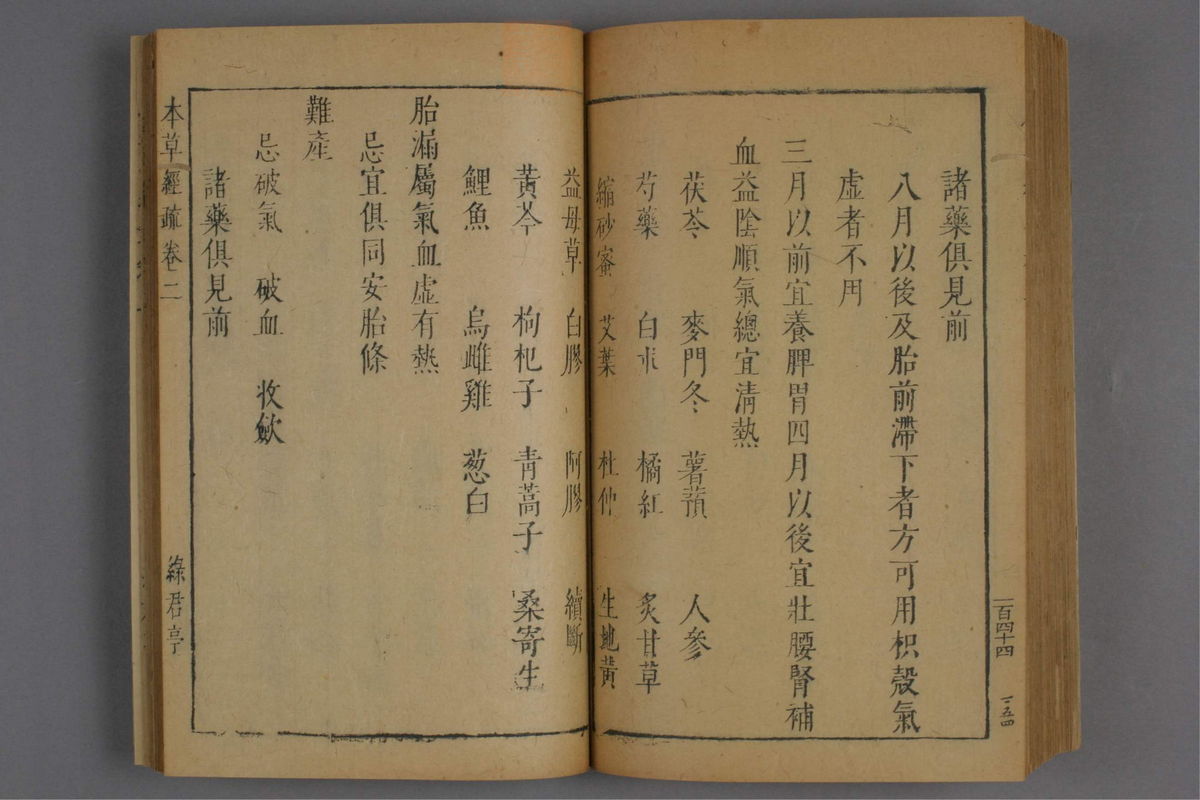 諸藥俱見前
八月以後及胎前滯下者方可用枳殼氣
虛者不用
三月以前宜養脾胃四月以後宜壯腰腎補
血益陰順氣總宜淸熱
茯苓　麥門冬　薯蕷　人參
芍藥　白朮　橘紅　炙甘草
縮砂蜜　艾葉　杜仲　生地黃
益母草　白膠　阿膠　續斷
黃芩　枸杞子　靑蒿子　桑寄生
鯉魚　烏雌雞　葱白
胎漏屬氣血虛有熱
忌宜俱同安胎條
難產
忌破氣　破血　收斂
諸藥俱見前
本草經疏卷二　綠君亭
一百四十四